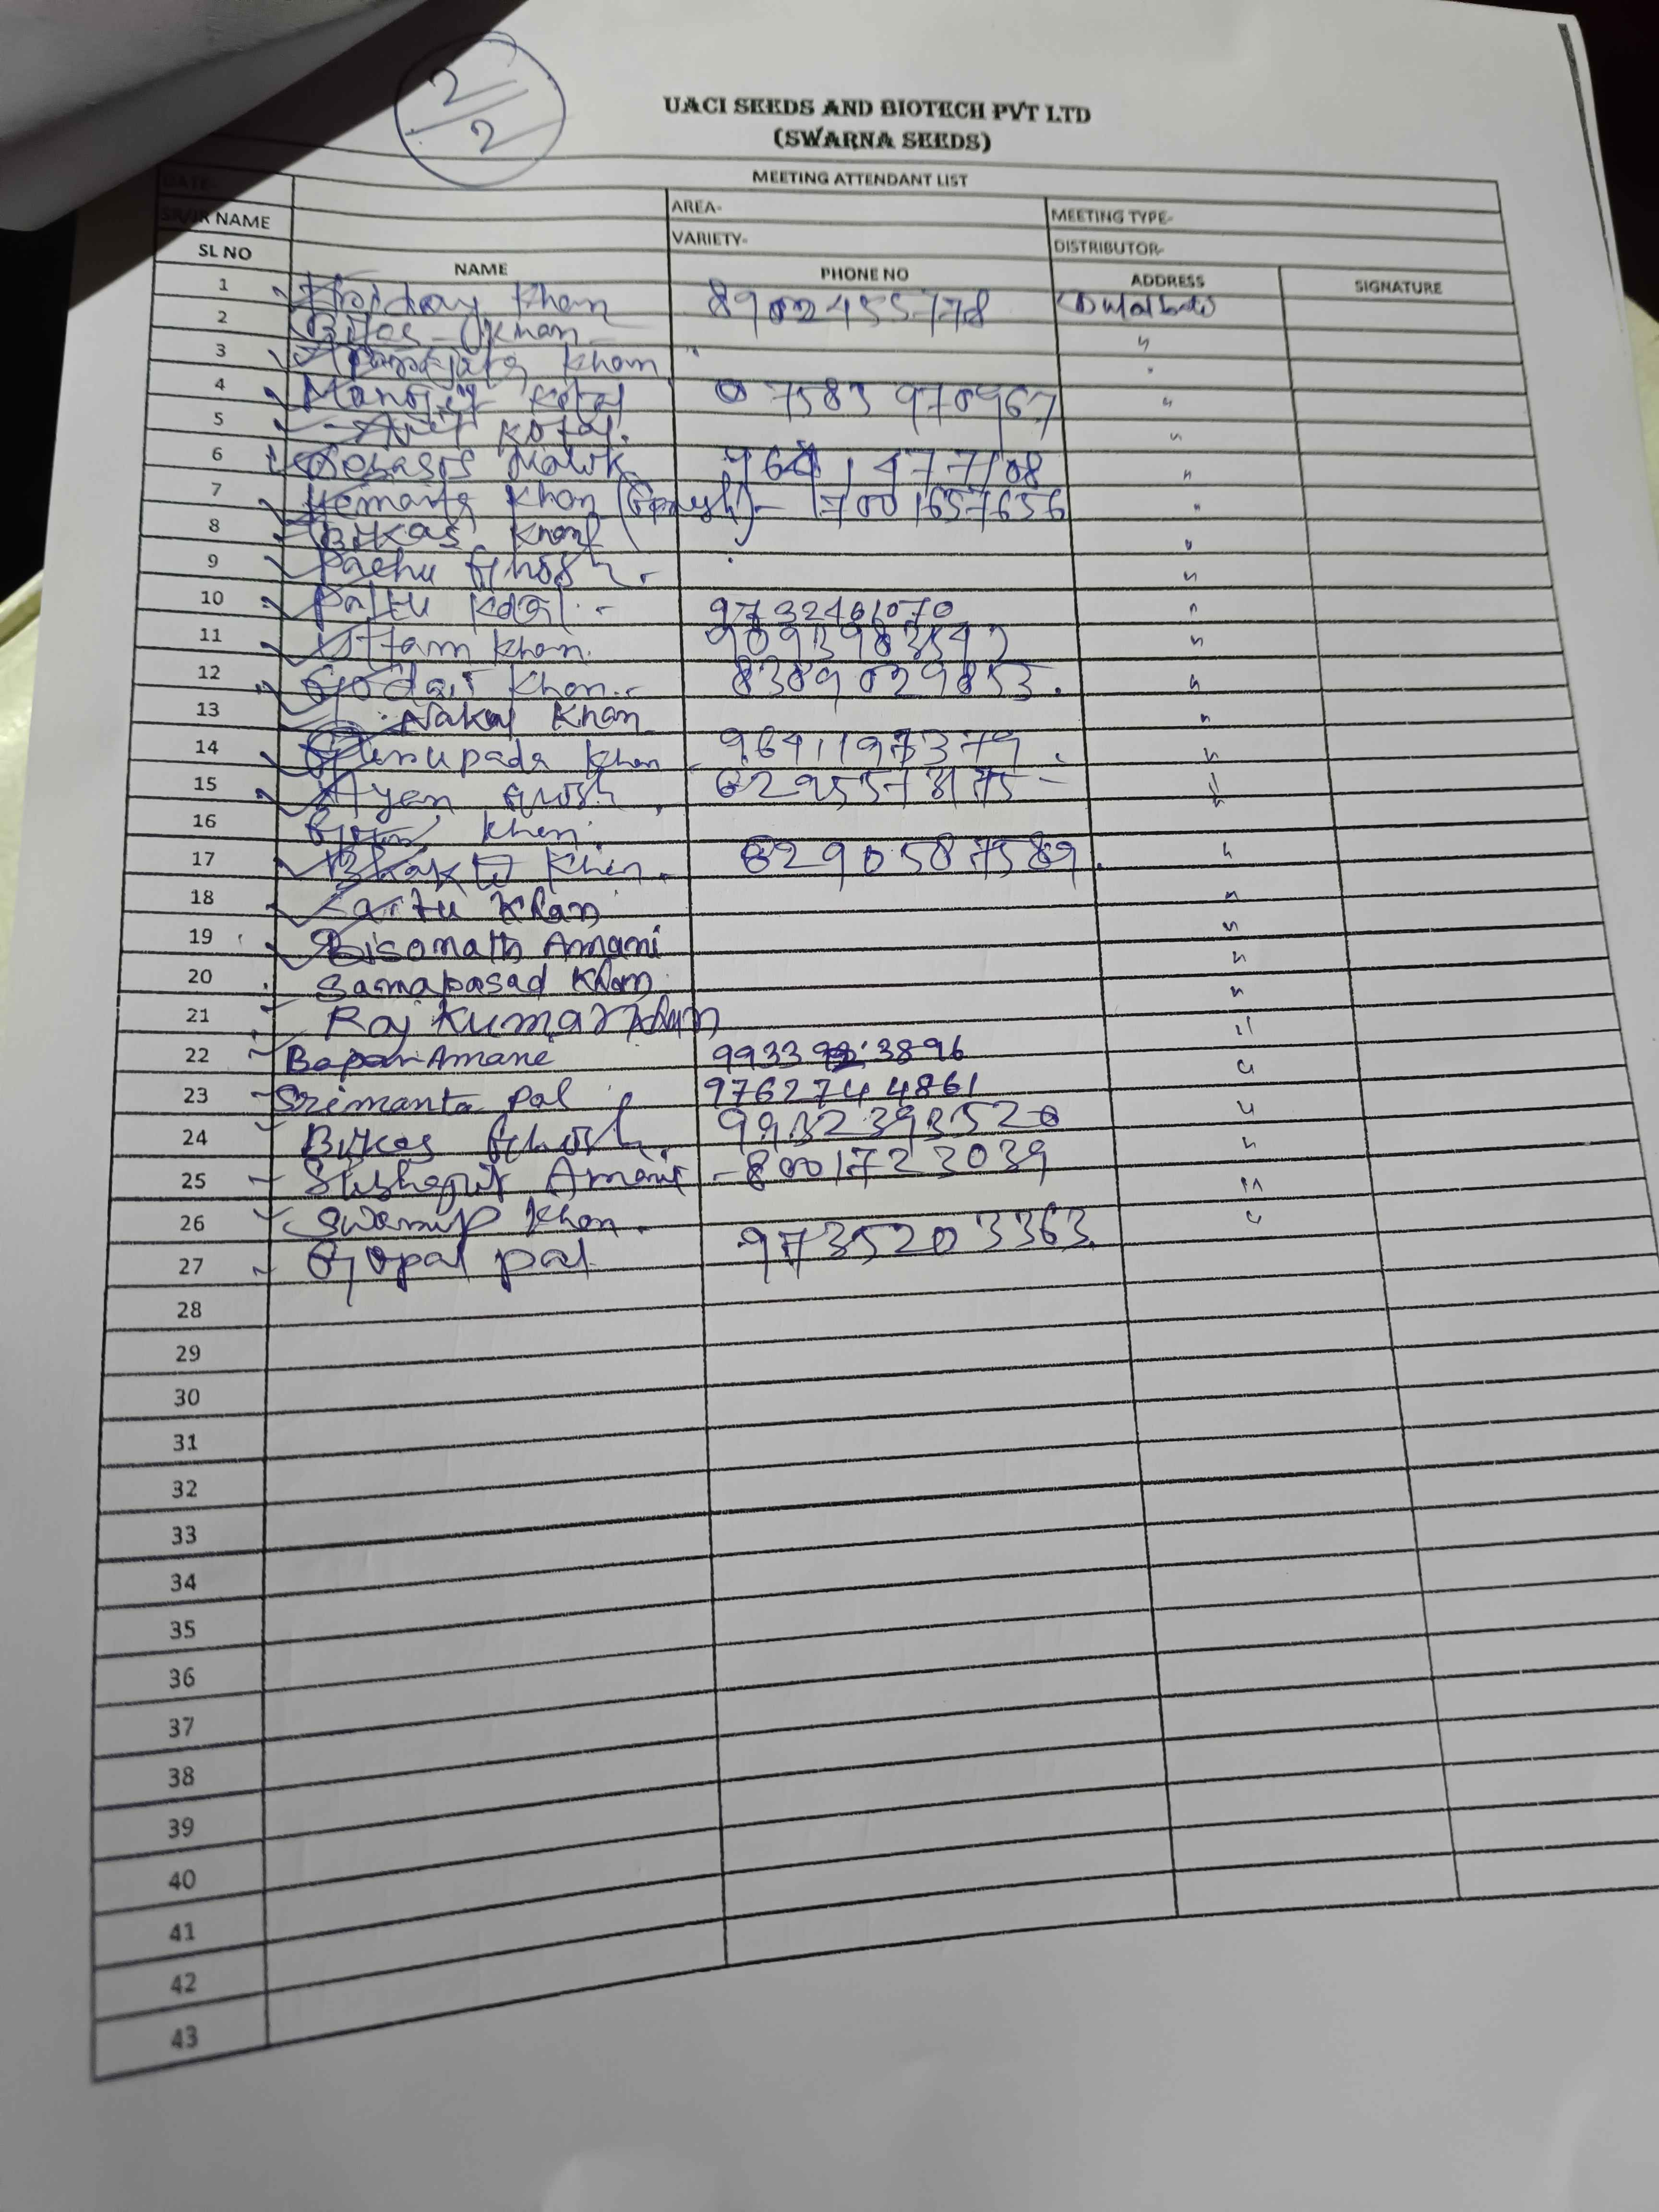 2/2
UACI SEEDS AND BIOTECH PVT LTD
(SWARNA SEEDS)
MEETING ATTENDANT LIST
DATE- AREA- MEETING TYPE-
SR/JR NAME VARIETY- DISTRIBUTOR-
SL NO NAME PHONE NO ADDRESS SIGNATURE
1 Khan 8902455778
2 Bilas Khan "
3 Khan "
4 Manojit Kotal 07583970967 "
5 Kotal. "
6 Debasis Malik "
7 Hemanta Khan (Ganesh) - 7001657656 "
8 Bikas Khan "
9 Pachu Ghosh. "
10 Paltu Kotal. - 9732461070 "
11 Uttam Khan. "
12 Khan.- 8389029853. "
13 Nakul Khan "
14 Gurupada Khan - 9641197379 "
15 Ayan Ghosh. "
16 Khan.
17 Khan. 6290587589. "
18 Khan "
19 Bisonath Amani "
20 Samapasad Khan. "
21 Raj Kumar Khan "
22 Bapan Amane "
23 Srimanta Pal 9762744861 "
24 Bikas Ghosh. 9932393520 "
25 - 8001723039 "
26 Swarup Khan. "
27 Gopal pal 9735203363.
28
29
30
31
32
33
34
35
36
37
38
39
40
41
42
43